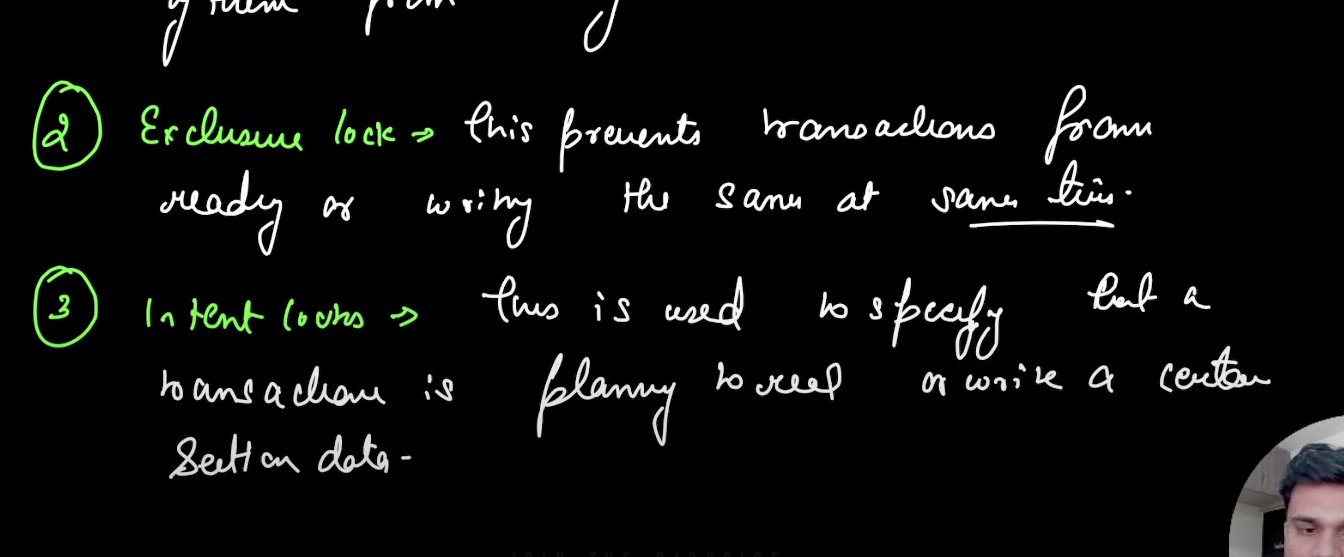 y them from
2 Exclusive lock → this prevents transactions from
ready or writing the same at same time.
3 Intent locks → this is used to specify that a
transaction is planning to read or write a certain
Section data -